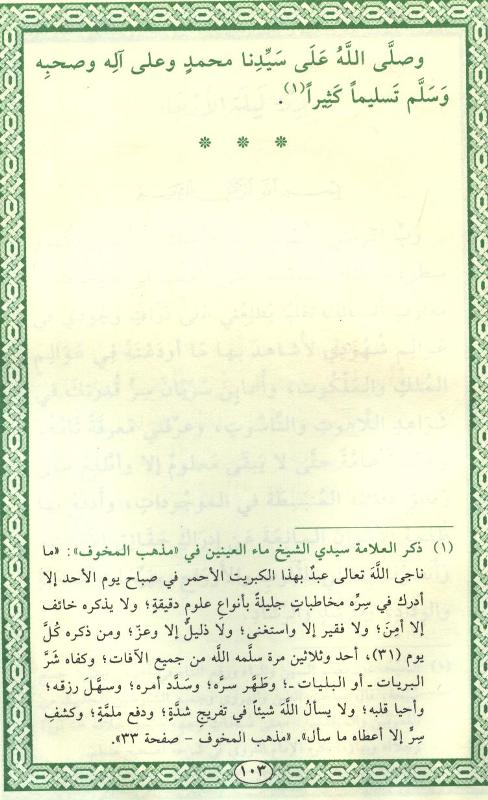 وصلَّى اللَّهُ عَلَى سَيِّدِنا محمدٍ وعلى آلِه وصحبِه
وَسَلَّم تَسليماً كَثِيراً(١).
* * *
(١) ذكر العلامة سيدي الشيخ ماء العينين في «مذهب المخوف»: «ما
ناجى اللَّهَ تعالى عبدٌ بهذا الكبريت الأحمر في صباح يوم الأحد إلا
أدرك في سِرِّه مخاطباتٍ جليلةً بأنواعِ علومٍ دقيقةٍ؛ ولا يذكره خائف
إلا أمِنَ؛ ولا فقير إلا واستغنى؛ ولا ذليلٌ إلا وعزّ؛ ومن ذكره كُلَّ
يوم (٣١)، أحد وثلاثين مرة سلَّمه اللَّه من جميع الآفات؛ وكفاه شَرَّ
البريات ـ أو البليات ـ؛ وطَهَّر سرَّه؛ وسَدَّد أمره؛ وسهَّلَ رزقه؛
وأحيا قلبه؛ ولا يسألُ اللَّهَ شيئاً في تفريجِ شدَّةٍ؛ ودفع ملمَّةٍ؛ وكشفِ
سِرٍّ إلا أعطاه ما سأل». «مذهب المخوف - صفحة ٣٣».
١٠٣